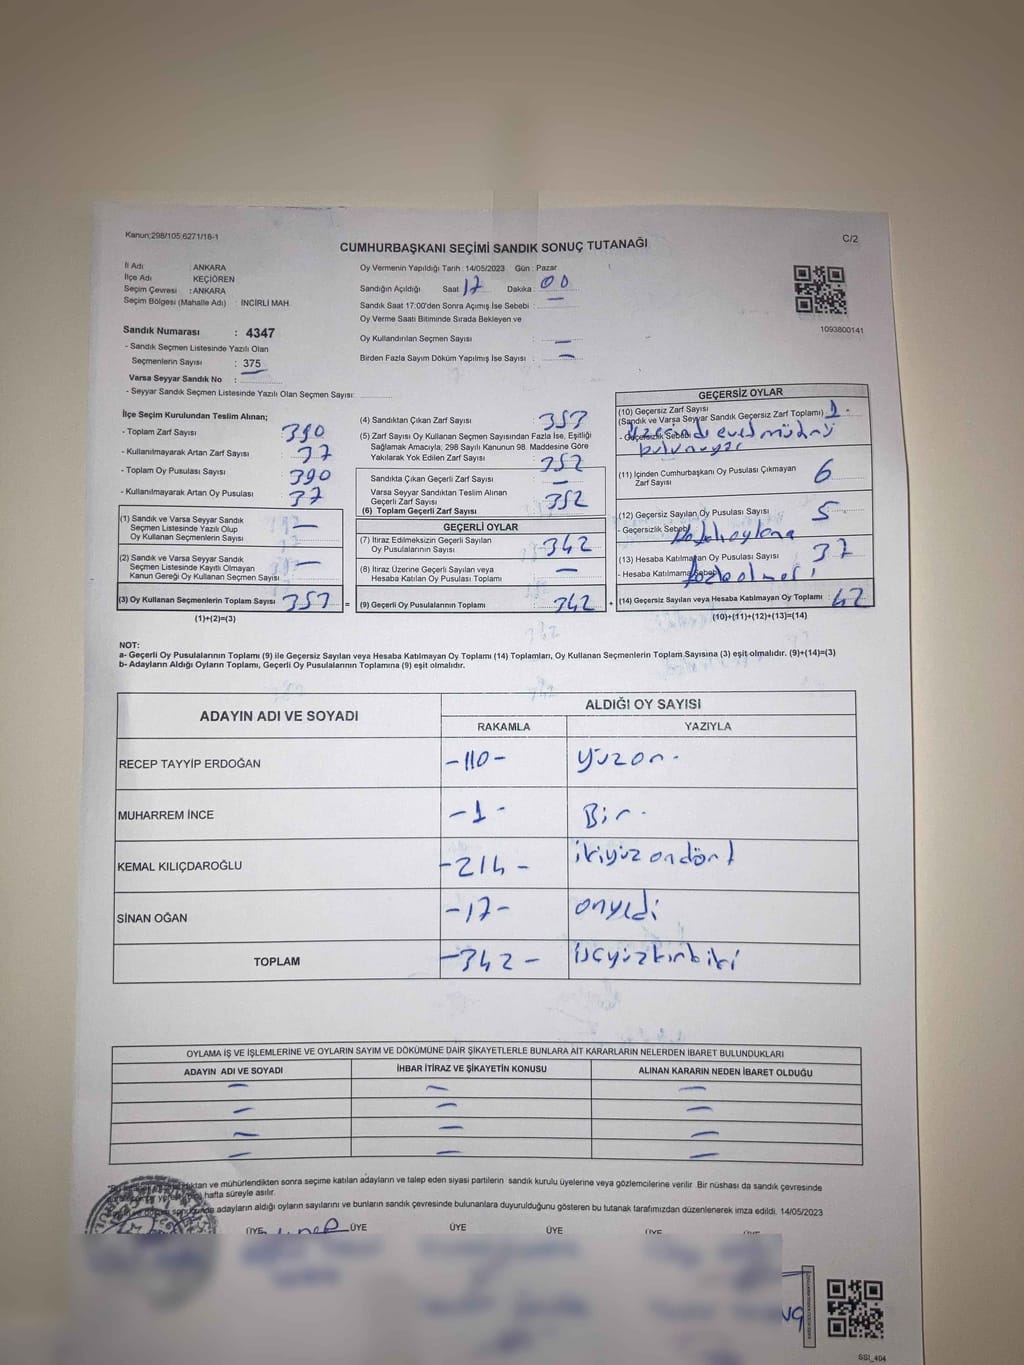 Kanun:298/105,6271/16-1
CUMHURBAŞKANI SEÇİMİ SANDIK SONUÇ TUTANAĞI
C/2
İl Adı : ANKARA
İlçe Adı : KEÇİÖREN
Seçim Çevresi : ANKARA
Seçim Bölgesi (Mahalle Adı) : İNCİRLİ MAH.
Sandık Numarası : 4347
- Sandık Seçmen Listesinde Yazılı Olan
Seçmenlerin Sayısı : 375
Varsa Seyyar Sandık No :
- Seyyar Sandık Seçmen Listesinde Yazılı Olan Seçmen Sayısı:
Oy Vermenin Yapıldığı Tarih : 14/05/2023 Gün : Pazar
Sandığın Açıldığı Saat 17 Dakika 00
Sandık Saat 17:00'den Sonra Açımış İse Sebebi : —
Oy Verme Saati Bitiminde Sırada Bekleyen ve
Oy Kullandırılan Seçmen Sayısı : —
Birden Fazla Sayım Döküm Yapılmış İse Sayısı : —
1093800141
İlçe Seçim Kurulundan Teslim Alınan;
- Toplam Zarf Sayısı : 390
- Kullanılmayarak Artan Zarf Sayısı : 37
- Toplam Oy Pusulası Sayısı : 390
- Kullanılmayarak Artan Oy Pusulası : 37
(1) Sandık ve Varsa Seyyar Sandık
Seçmen Listesinde Yazılı Olup
Oy Kullanan Seçmenlerin Sayısı : —
(2) Sandık ve Varsa Seyyar Sandık
Seçmen Listesinde Kayıtlı Olmayan
Kanun Gereği Oy Kullanan Seçmen Sayısı : —
(3) Oy Kullanan Seçmenlerin Toplam Sayısı : 353 =
(1)+(2)=(3)
(4) Sandıktan Çıkan Zarf Sayısı : 353
(5) Zarf Sayısı Oy Kullanan Seçmen Sayısından Fazla İse, Eşitliği
Sağlamak Amacıyla; 298 Sayılı Kanunun 98. Maddesine Göre
Yakılarak Yok Edilen Zarf Sayısı :
Sandıkta Çıkan Geçerli Zarf Sayısı : 352
Varsa Seyyar Sandıktan Teslim Alınan
Geçerli Zarf Sayısı : —
(6) Toplam Geçerli Zarf Sayısı : 352
GEÇERLİ OYLAR
(7) İtiraz Edilmeksizin Geçerli Sayılan
Oy Pusulalarının Sayısı : 342
(8) İtiraz Üzerine Geçerli Sayılan veya
Hesaba Katılan Oy Pusulası Toplamı : —
(9) Geçerli Oy Pusulalarının Toplamı : 342 +
GEÇERSİZ OYLAR
(10) Geçersiz Zarf Sayısı
(Sandık ve Varsa Seyyar Sandık Geçersiz Zarf Toplamı) : 1.
- Geçersizlik Sebebi
(11) İçinden Cumhurbaşkanı Oy Pusulası Çıkmayan
Zarf Sayısı : 6
(12) Geçersiz Sayılan Oy Pusulası Sayısı : 5
- Geçersizlik Sebebi
(13) Hesaba Katılmayan Oy Pusulası Sayısı : 37
- Hesaba Katılmama Sebebi Fazla olması
(14) Geçersiz Sayılan veya Hesaba Katılmayan Oy Toplamı : 42
(10)+(11)+(12)+(13)=(14)
NOT:
a- Geçerli Oy Pusulalarının Toplamı (9) ile Geçersiz Sayılan veya Hesaba Katılmayan Oy Toplamı (14) Toplamları, Oy Kullanan Seçmenlerin Toplam Sayısına (3) eşit olmalıdır. (9)+(14)=(3)
b- Adayların Aldığı Oyların Toplamı, Geçerli Oy Pusulalarının Toplamına (9) eşit olmalıdır.
ADAYIN ADI VE SOYADI
ALDIĞI OY SAYISI
RAKAMLA YAZIYLA
RECEP TAYYİP ERDOĞAN -110- yüzon.
MUHARREM İNCE -1- Bir.
KEMAL KILIÇDAROĞLU -214- ikiyüz ondört
SİNAN OĞAN -17- onyedi
TOPLAM -342- üçyüzkırkiki
OYLAMA İŞ VE İŞLEMLERİNE VE OYLARIN SAYIM VE DÖKÜMÜNE DAİR ŞİKAYETLERLE BUNLARA AİT KARARLARIN NELERDEN İBARET BULUNDUKLARI
ADAYIN ADI VE SOYADI İHBAR İTİRAZ VE ŞİKAYETİN KONUSU ALINAN KARARIN NEDEN İBARET OLDUĞU
ve mühürlendikten sonra seçime katılan adayların ve talep eden siyasi partilerin sandık kurulu üyelerine veya gözlemcilerine verilir. Bir nüshası da sandık çevresinde
hafta süreyle asılır.
adayların aldığı oyların sayılarını ve bunların sandık çevresinde bulunanlara duyurulduğunu gösteren bu tutanak tarafımızdan düzenlenerek imza edildi. 14/05/2023
ÜYE ÜYE ÜYE ÜYE ÜYE
SSI_404